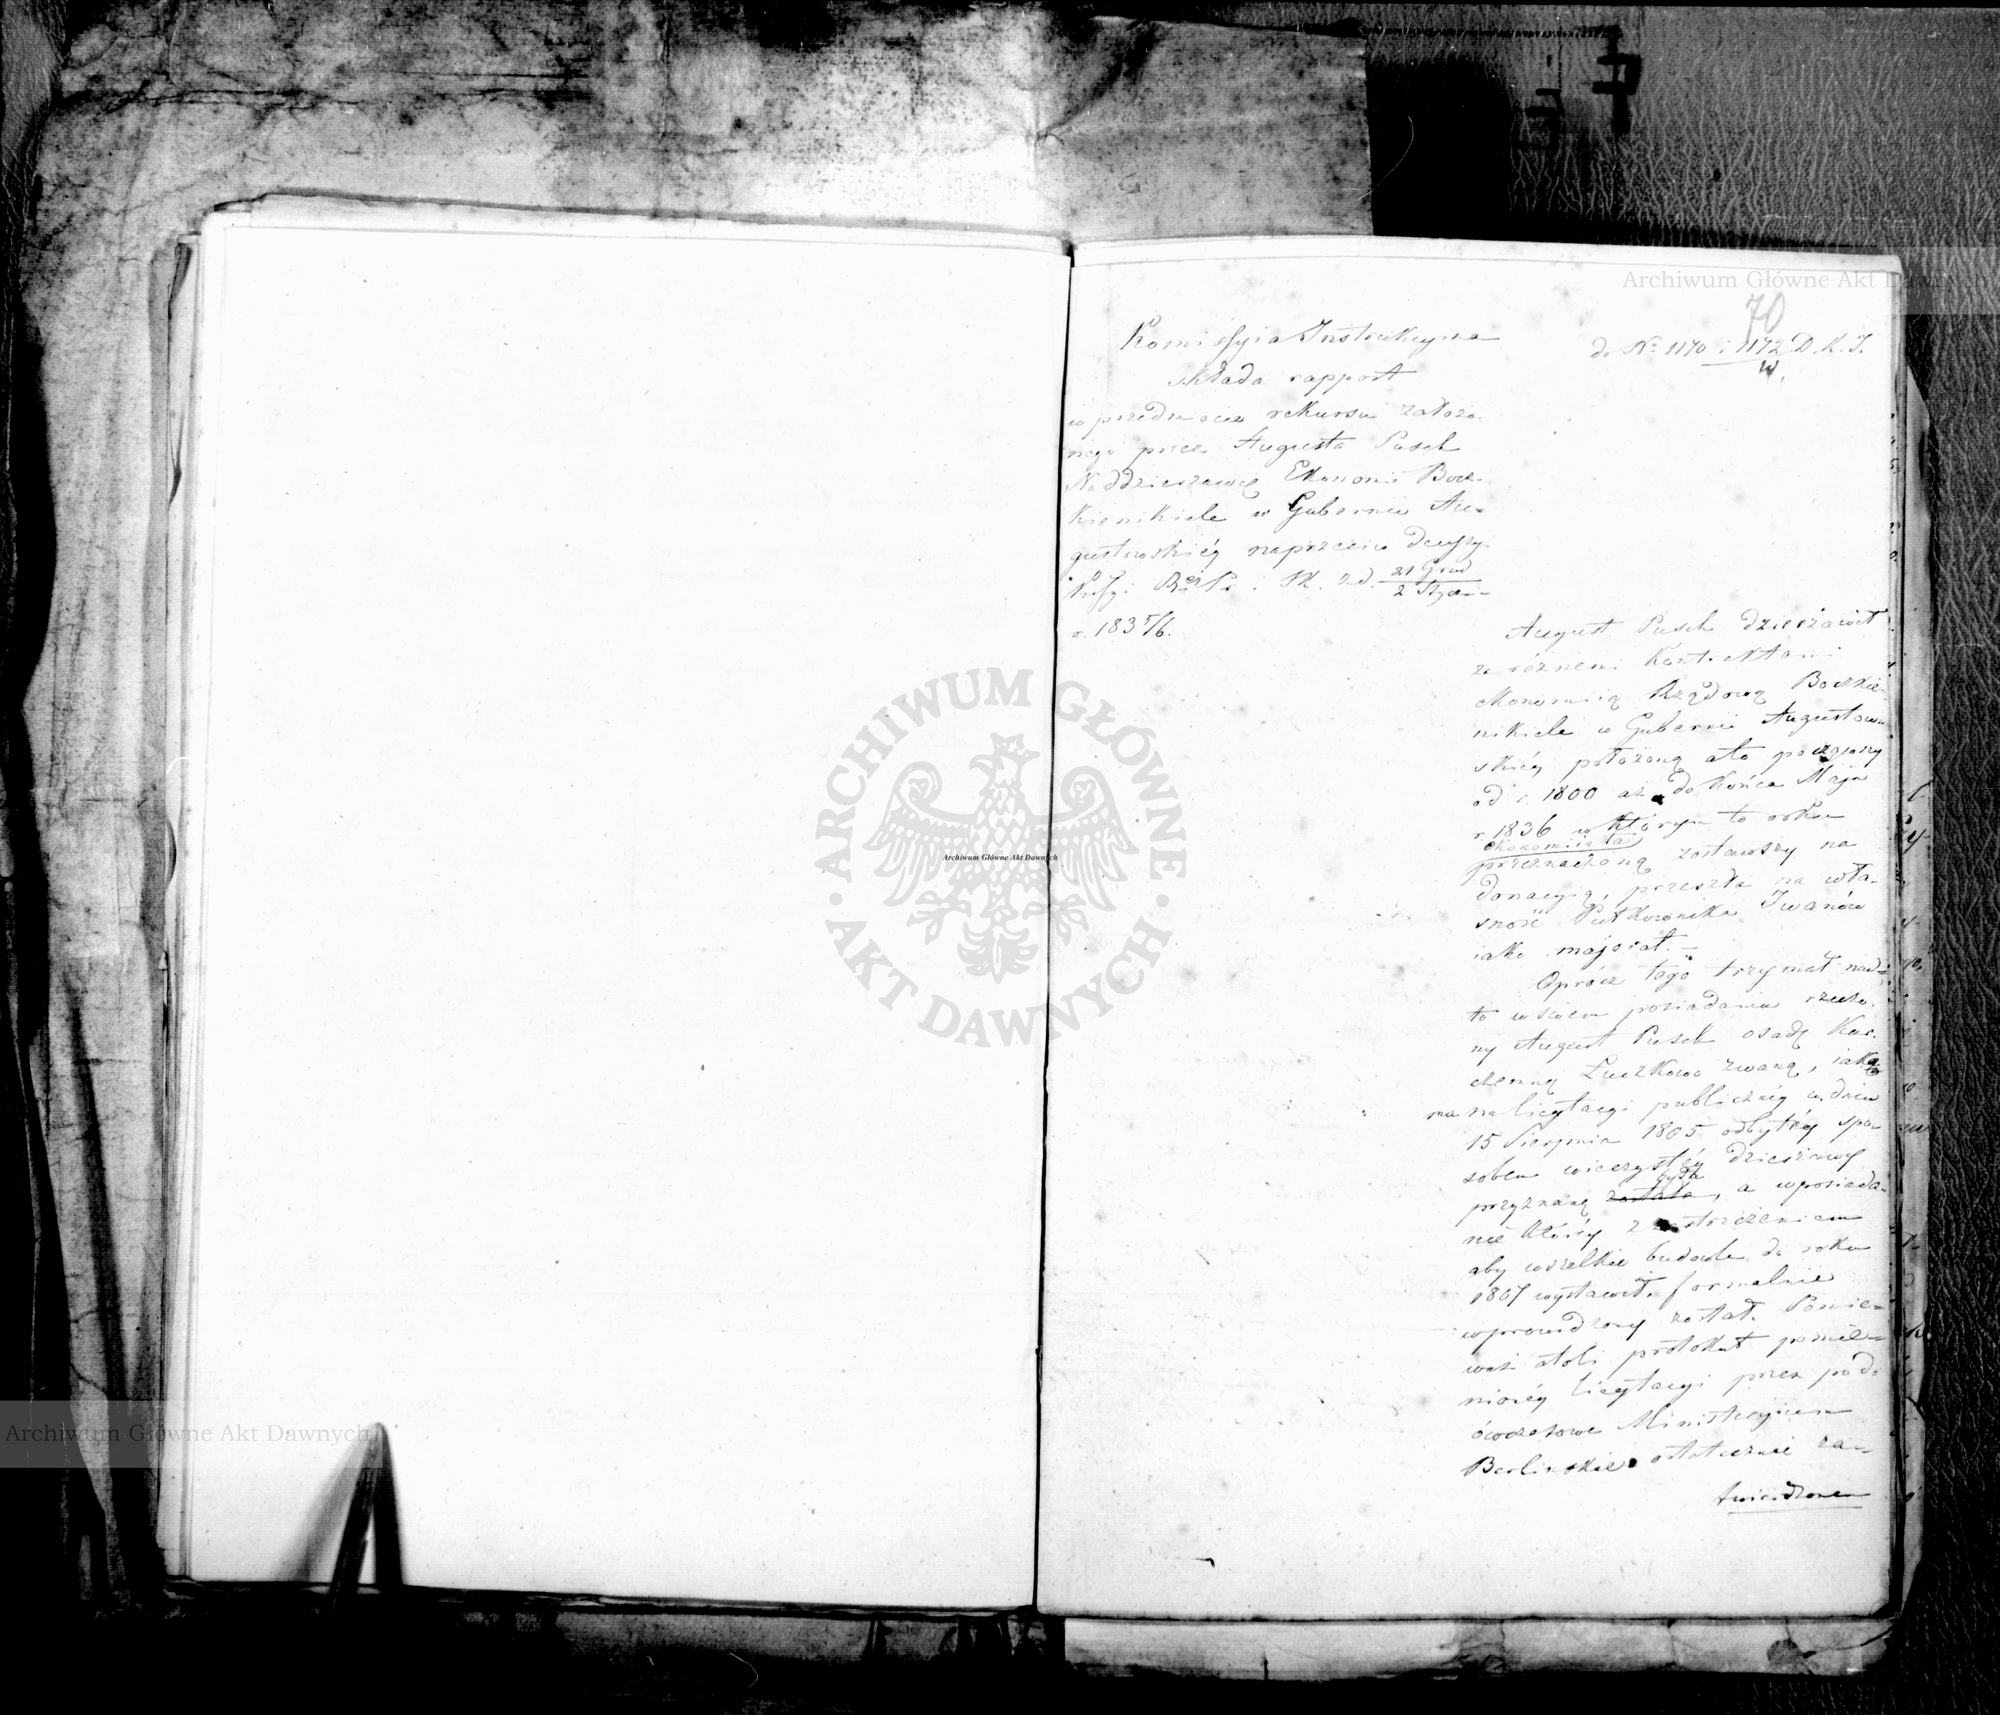 Archiwum Główne Akt Dawnych
70
do Nr 1170 i 1172 D. K. I.
w.
Komissyia Instrukcyina
składa rapport
w przedmiocie rekursu założo-
nego przez Augusta Pusch
Naddzierzawcę Ekonomii Bocz-
kieninkiele w Gubernii Au-
gustowskiéy naprzeciw decyzyi
Kssyi Rz Pr. i Sk. z d. 21 Grud / 2 Stycz
r. 1835/6.
August Pusch dzierżawił
za różnemi Kontraktami
ekonomią Rządową Boczkie-
ninkiele w Gubernii Augustow-
skiéy położoną a to począwszy
od r. 1800 aż do końca Maja
r. 1836 w którym to roku
ekonomia ta
przeznaczoną zostawszy na
donacyią, przeszła na wła-
sność Pułkownika Iwanów
iako majorat.
Oprócz tego trzymał nad-
to w swém posiadaniu rzeczo-
ny August Pusch osadę Kar-
czemną Łuczkowo zwaną, iaka
mu na licytacyi publicznéy w dniu
15 Sierpnia 1805 odbytéy spo-
sobem wieczystéy dzierżawy
była
przyznaną została, a w posiada-
nie któréy z zastrzeżeniem
aby wszelkie budowle do roku
1807 wystawił, formalnie
wprowadzony został. Ponie-
waż atoli protokuł pomie-
nionéy licytacyi przez pod-
ówczasowe Ministeryium
Berlinskie ostatecznie za-
twierdzonem
ARCHIWUM GŁÓWNE AKT DAWNYCH
Archiwum Główne Akt Dawnych
Archiwum Główne Akt Dawnych